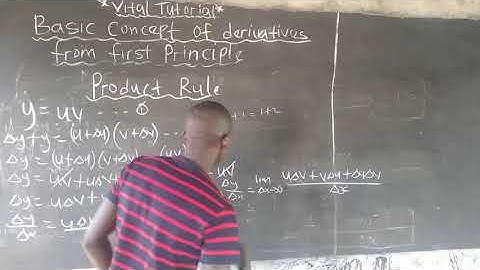 *Vital Tutorial*
Basic Concept of derivatives
from first Principle
Product Rule
y = uv --- ①
Δy+y = (u+Δu)(v+Δv) ---
Δy = (u+Δu)(v+Δv) - (uv)
Δy = uv + uΔv +
Δy = uΔv +
Δy/Δx = uΔv
+1 = 1+2
- uv
Δy/Δx = lim Δx→0 (uΔv + vΔu + ΔuΔv)/Δx